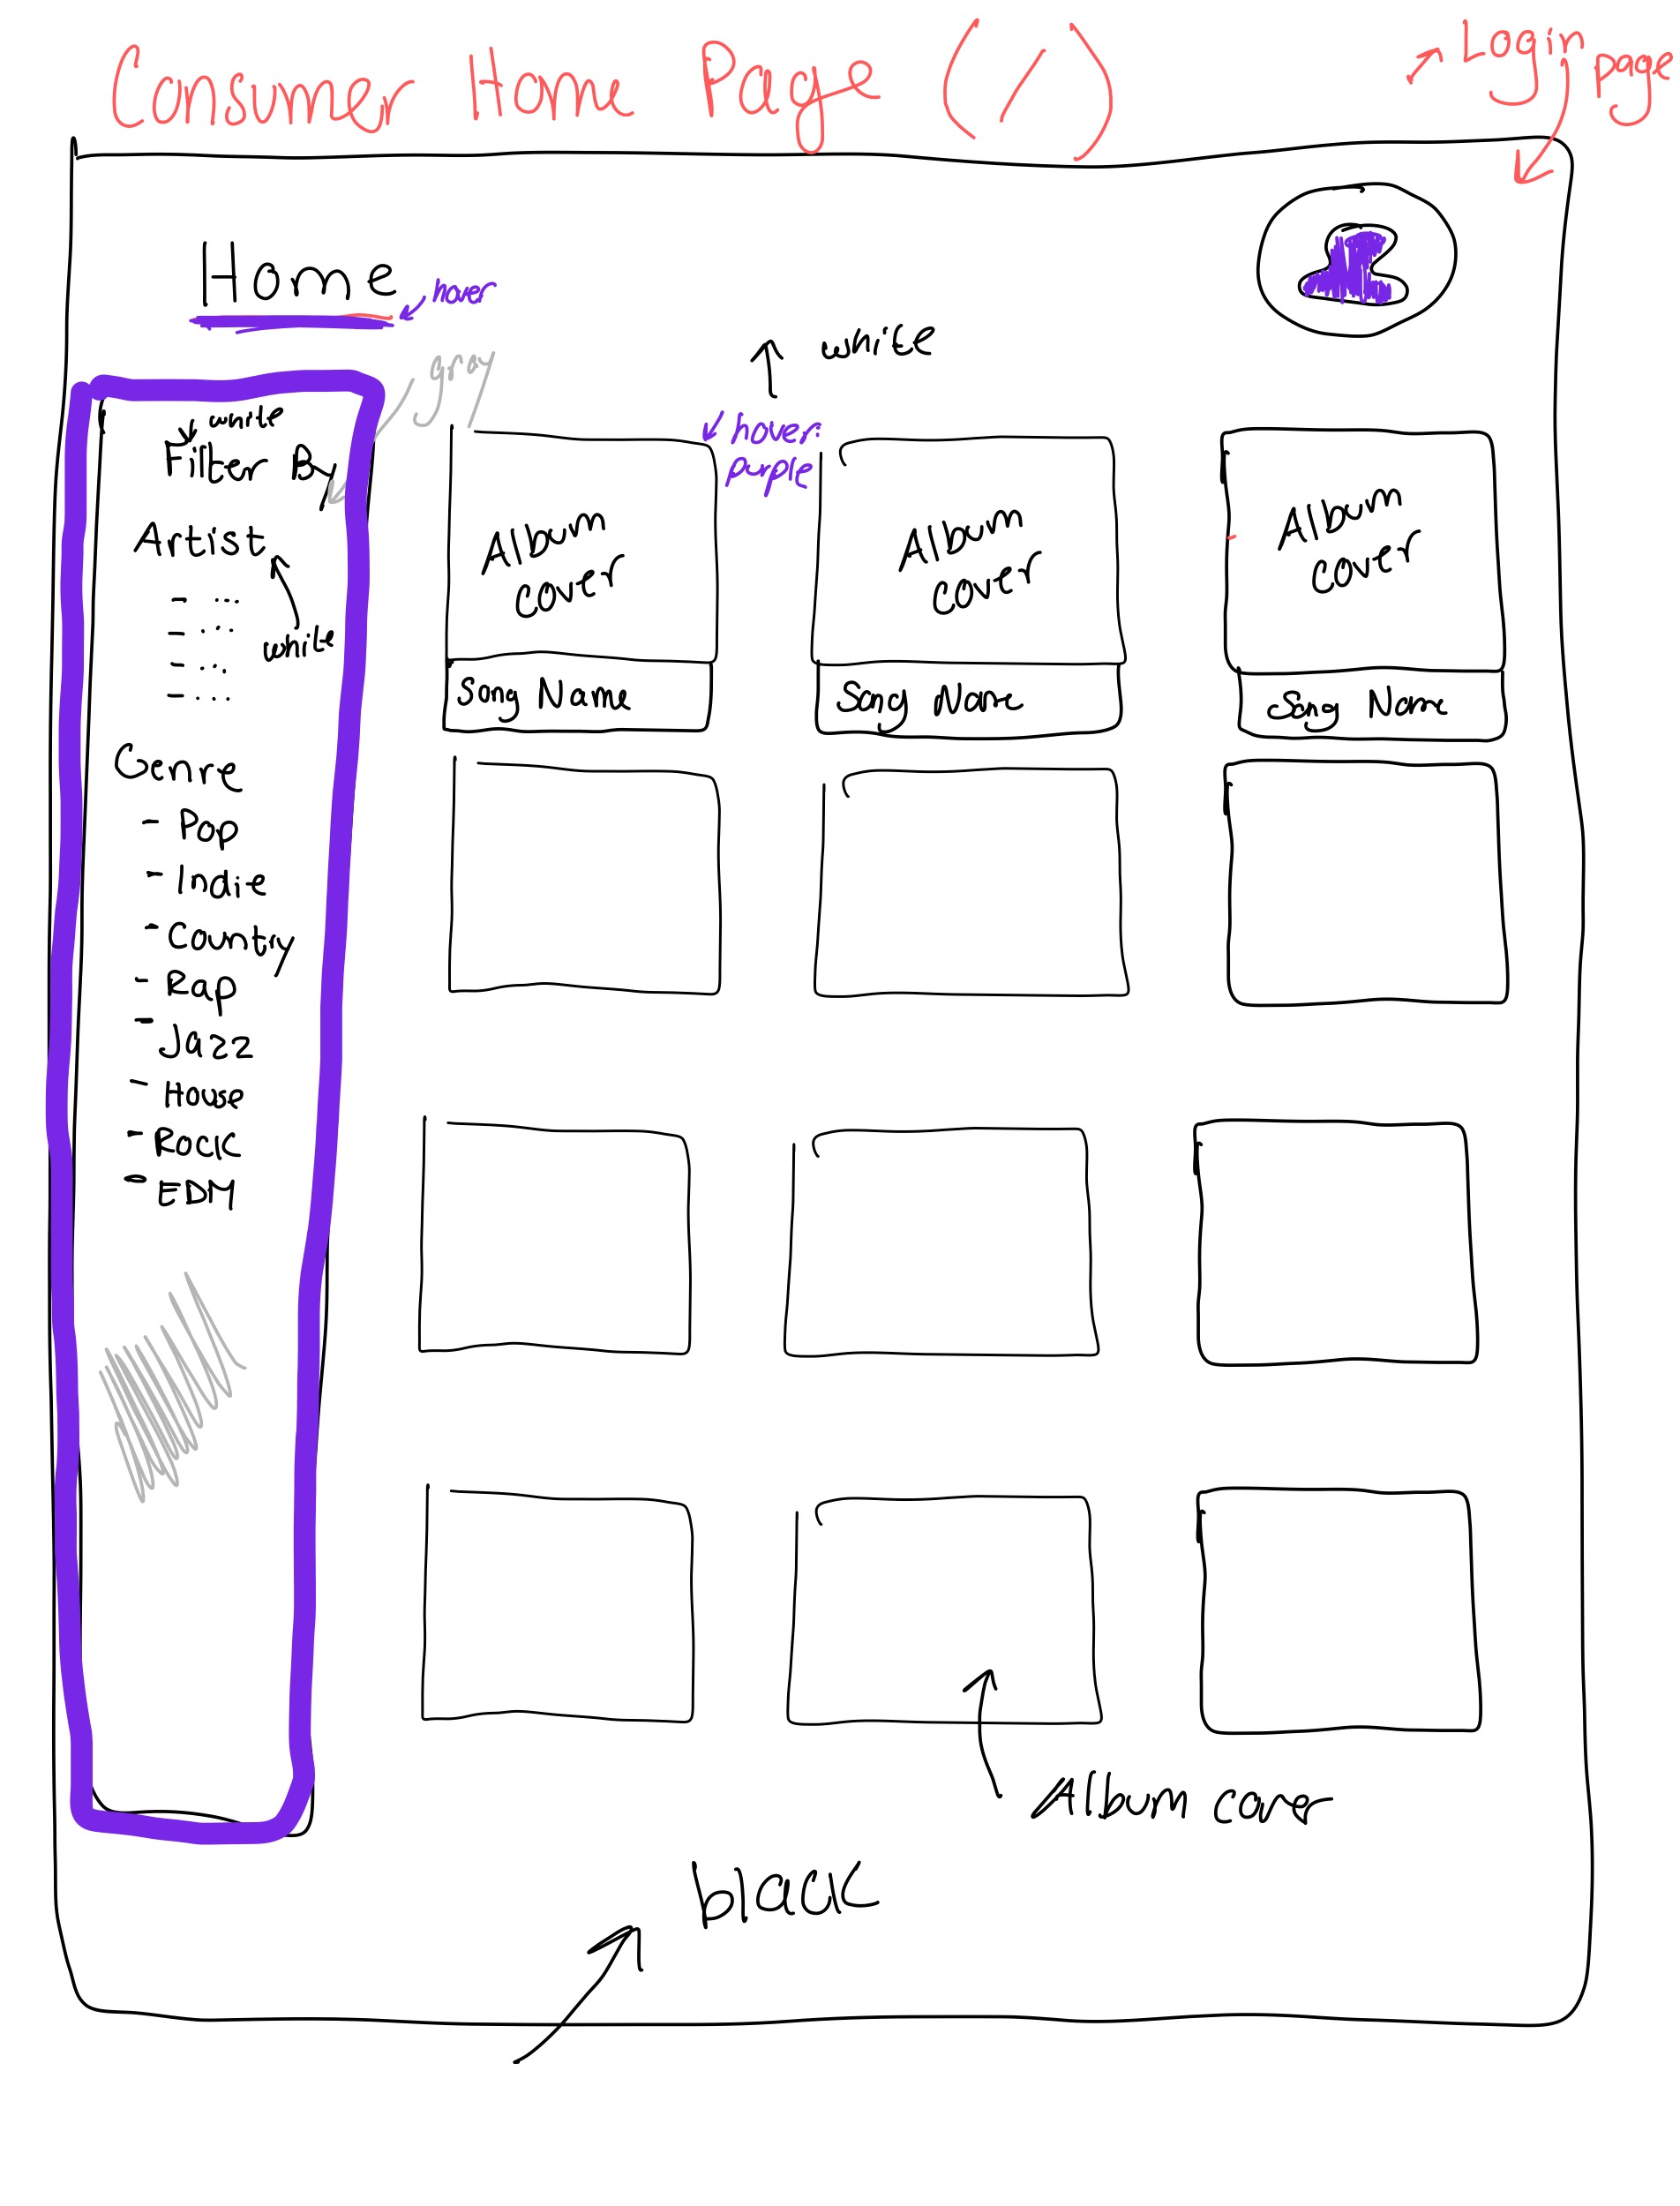 Consumer Home Page (/)
Login
page
Home
hover
white
gray
white
Filter By
Artist
- ...
- ...
- ...
- ...
white
Genre
- Pop
- Indie
- Country
- Rap
- Jazz
- House
- Rock
- EDM
hover:
purple
Album
cover
Song Name
Album
cover
Song Name
Album
cover
Song Name
Album cover
black